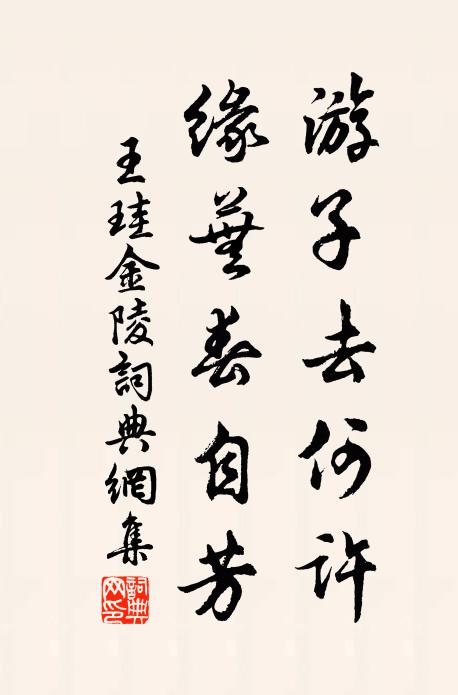 游子去何許
緣蕪春自芳
王珪金陵詞典網集
詞典網印